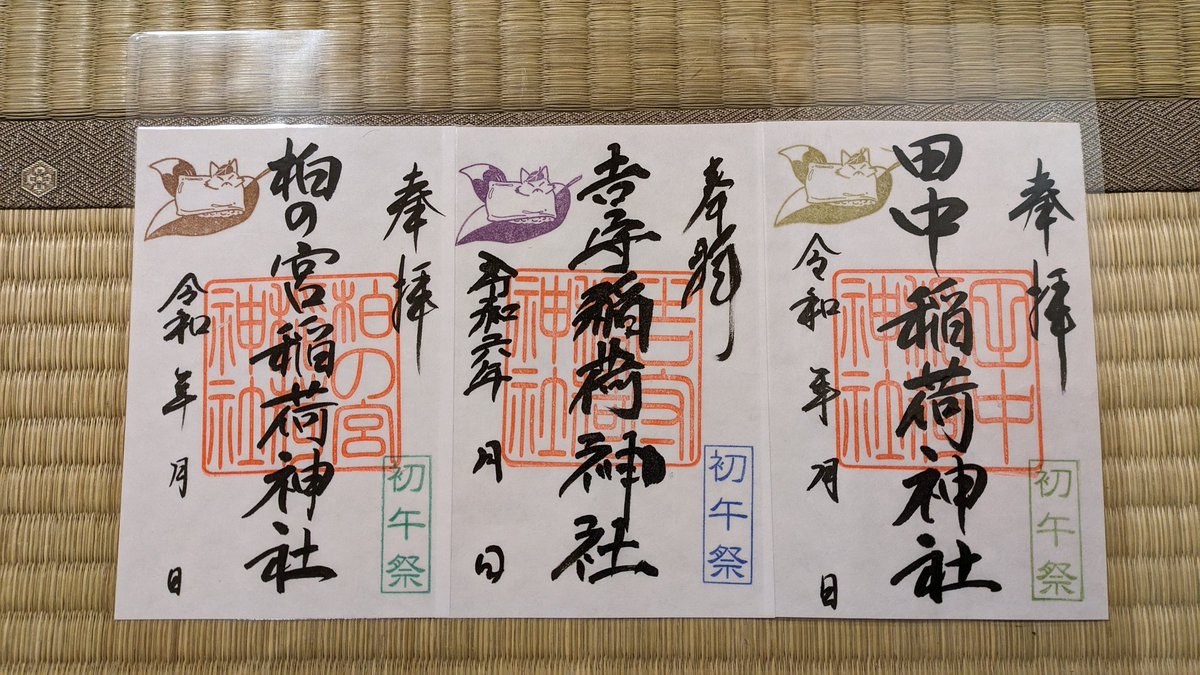 奉拝
初午祭
田中稲荷神社
田中
稲荷
神社
令和 年 月 日
奉拝
初午祭
吉守稲荷神社
吉守
稲荷
神社
令和六年 月 日
奉拝
初午祭
柏の宮稲荷神社
柏の宮
稲荷
神社
令和 年 月 日